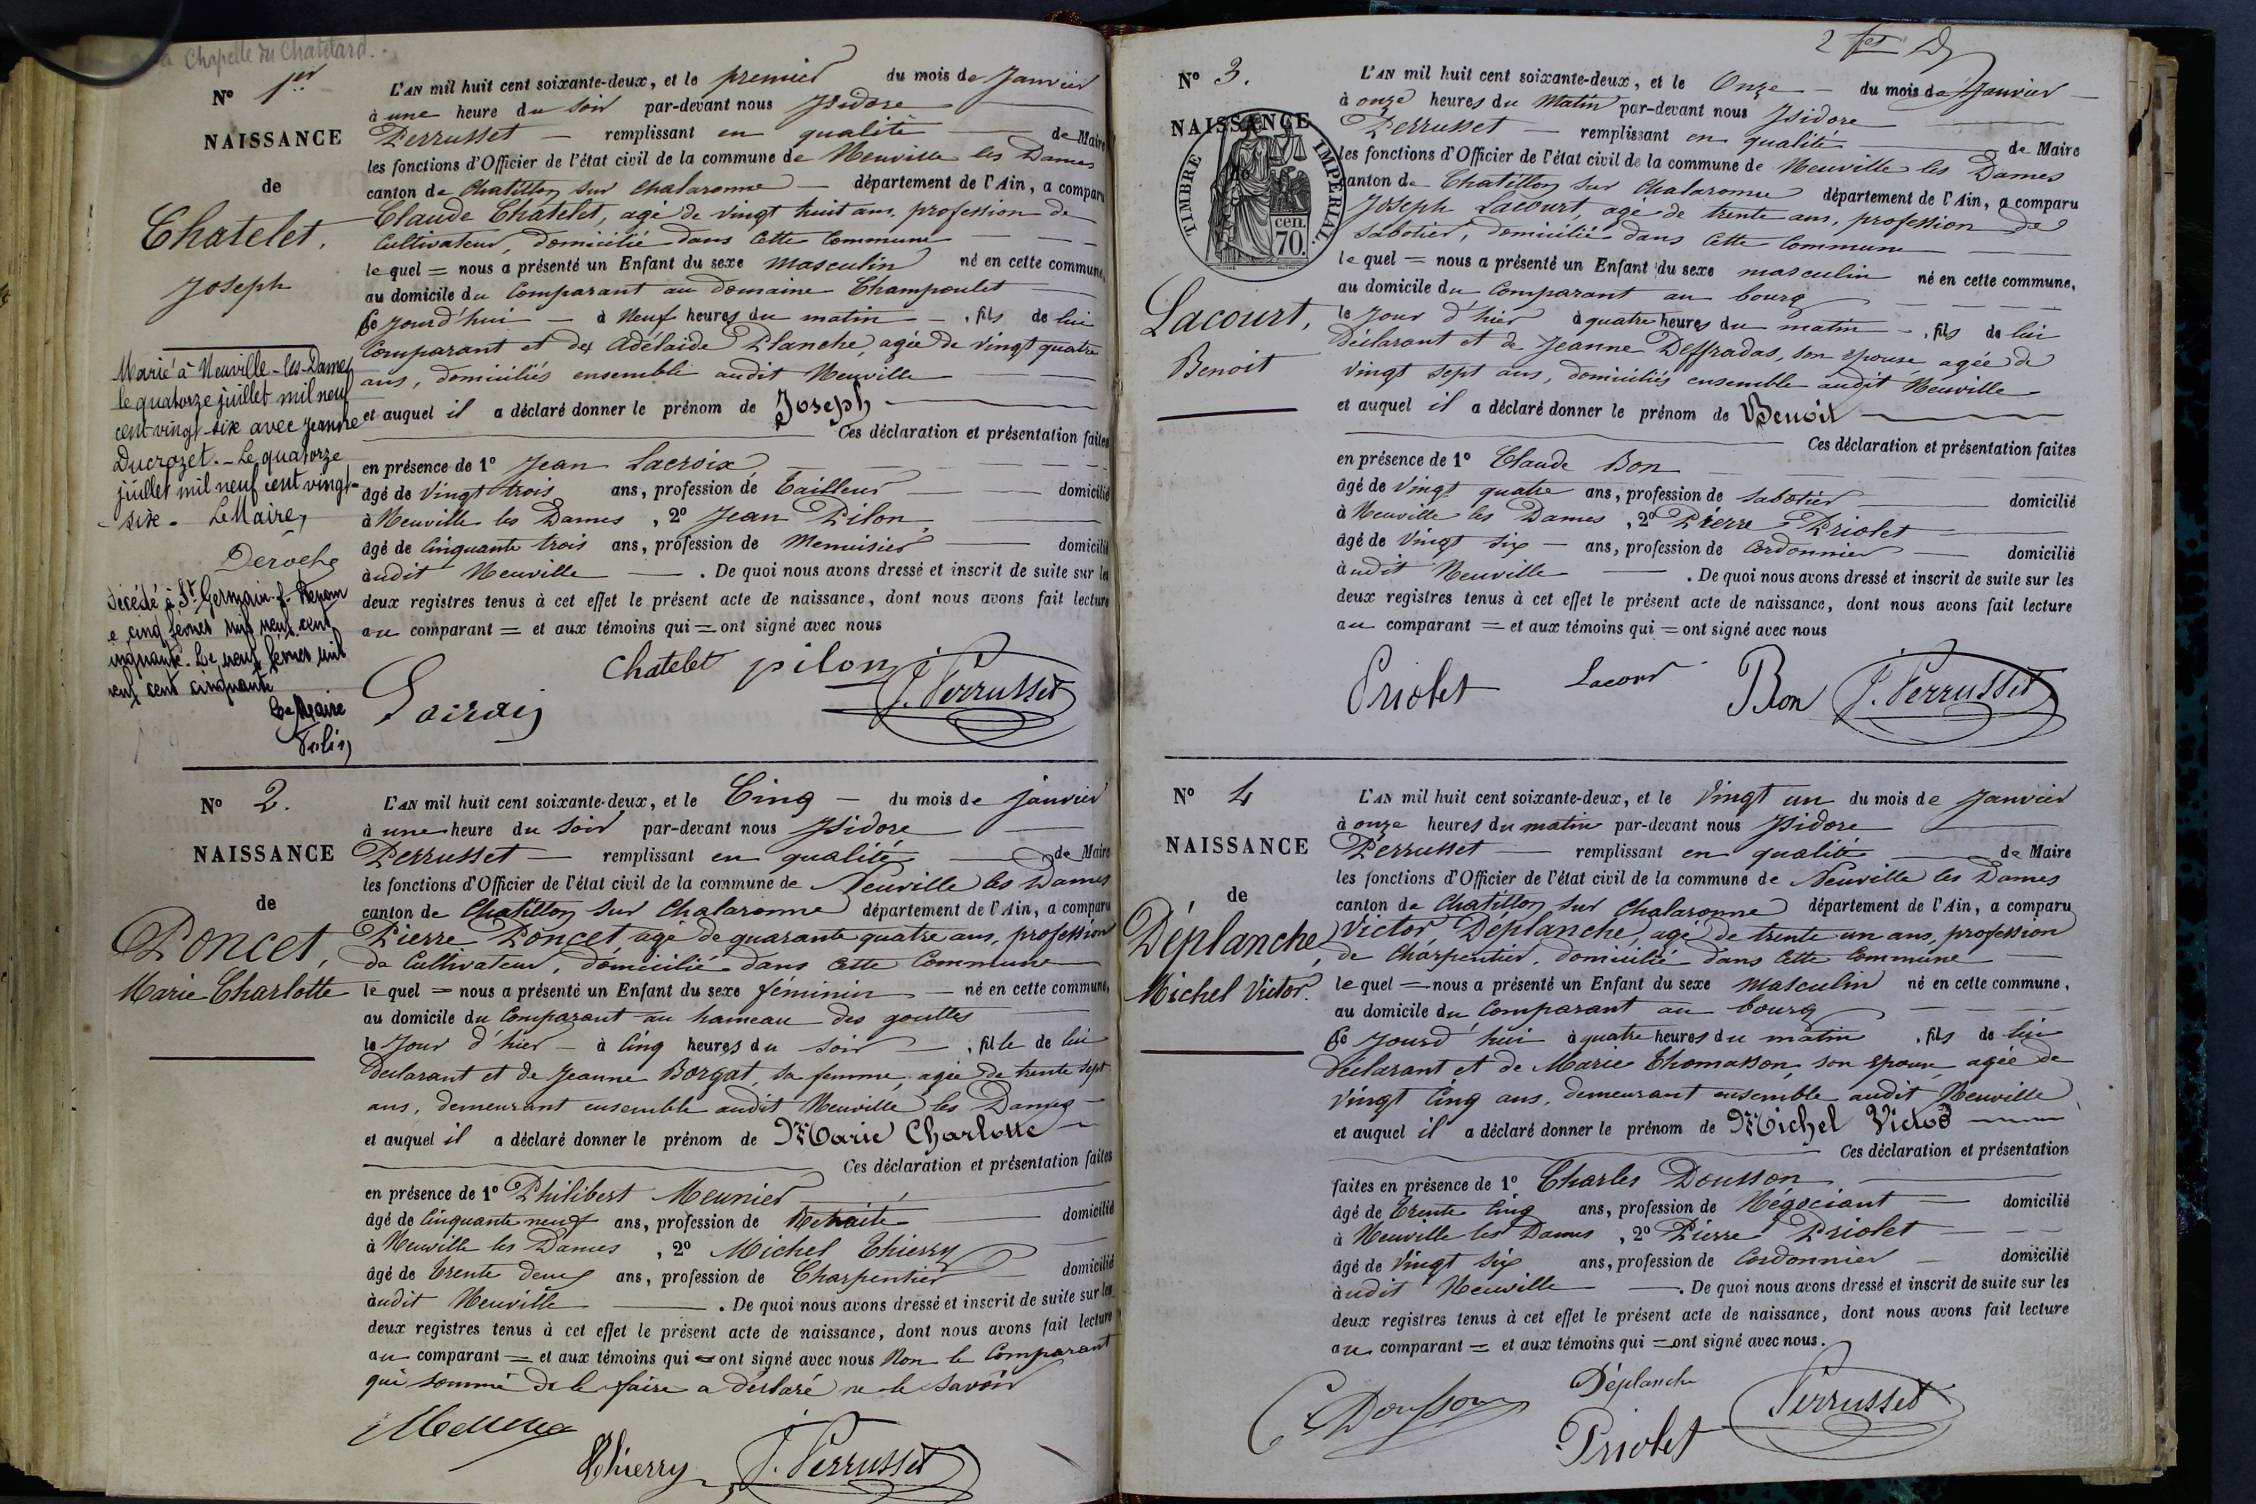 la Chapelle du Chatelard.
N° 1er
NAISSANCE
de
Chatelet,
Joseph
Marié à Neuville-les-Dames
le quatorze juillet mil neuf
cent vingt-six avec Jeanne
Ducrozet. - Le quatorze
juillet mil neuf cent vingt-
six. Le Maire,
Deroche
Décédé à St Germain
cinq février mil neuf cent
cinquante. Le neuf février mil
neuf cent cinquante
Le Maire
L'AN mil huit cent soixante-deux, et le premier du mois de Janvier
à une heure du soir par-devant nous Isidore
Perrusset remplissant en qualité de Maire
les fonctions d'Officier de l'état civil de la commune de Neuville les Dames
canton de Chatillon sur Chalaronne département de l'Ain, a comparu
Claude Chatelet, agé de vingt huit ans, profession de
Cultivateur, domicilié dans cette Commune
lequel = nous a présenté un Enfant du sexe masculin né en cette commune,
au domicile du Comparant au domaine Champoulet
Ce jourd'hui à Neuf heures du matin, fils de lui
Comparant et de Adélaide Planche, agée de vingt quatre
ans, domiciliés ensemble audit Neuville
et auquel il a déclaré donner le prénom de Joseph
Ces déclaration et présentation faites
en présence de 1° Jean Lacroix
âgé de Vingt trois ans, profession de Tailleur domicilié
à Neuville les Dames, 2° Jean Pilon
âgé de Cinquante trois ans, profession de Menuisier domicilié
audit Neuville. De quoi nous avons dressé et inscrit de suite sur les
deux registres tenus à cet effet le présent acte de naissance, dont nous avons fait lecture
au comparant = et aux témoins qui = ont signé avec nous
Chatelet pilon J. Perrusset
N° 2.
NAISSANCE
de
Poncet,
Marie Charlotte
L'AN mil huit cent soixante-deux, et le Cinq du mois de janvier
à une heure du soir par-devant nous Isidore
Perrusset remplissant en qualité de Maire
les fonctions d'Officier de l'état civil de la commune de Neuville les Dames
canton de Chatillon sur Chalaronne département de l'Ain, a comparu
Pierre Poncet, agé de quarante quatre ans, profession
de Cultivateur, domicilié dans cette Commune
lequel = nous a présenté un Enfant du sexe feminin né en cette commune,
au domicile du Comparant au hameau des gouttes
le jour d'hier à Cinq heures du soir, fille de lui
Déclarant et de Jeanne Borgat, sa femme, agée de trente sept
ans, demeurant ensemble audit Neuville les Dames
et auquel il a déclaré donner le prénom de Marie Charlotte
Ces déclaration et présentation faites
en présence de 1° Philibert Meunier
âgé de Cinquante neuf ans, profession de Retraité domicilié
à Neuville les Dames, 2° Michel Thierry
âgé de trente deux ans, profession de Charpentier domicilié
audit Neuville. De quoi nous avons dressé et inscrit de suite sur les
deux registres tenus à cet effet le présent acte de naissance, dont nous avons fait lecture
au comparant = et aux témoins qui = ont signé avec nous Non le Comparant
qui sommé de le faire a déclaré ne le savoir
Thierry J. Perrusset
N° 3.
NAISSANCE
TIMBRE IMPÉRIAL.
cen.
70.
Lacourt,
Benoit
L'AN mil huit cent soixante-deux, et le Onze du mois de Janvier
à onze heures du Matin par-devant nous Isidore
Perrusset remplissant en qualité de Maire
les fonctions d'Officier de l'état civil de la commune de Neuville les Dames
canton de Chatillon sur Chalaronne département de l'Ain, a comparu
Joseph Lacourt, agé de trente ans, profession de
Sabotier, domicilié dans cette Commune
lequel = nous a présenté un Enfant du sexe masculin né en cette commune,
au domicile du Comparant au bourg
le jour d'hier à quatre heures du matin, fils de lui
Déclarant et de Jeanne Deffradas, son épouse, agée de
vingt sept ans, domiciliés ensemble audit Neuville
et auquel il a déclaré donner le prénom de Benoit
Ces déclaration et présentation faites
en présence de 1° Claude Bon
âgé de Vingt quatre ans, profession de sabotier domicilié
à Neuville les Dames, 2° Pierre Priolet
âgé de Vingt six ans, profession de Cordonnier domicilié
audit Neuville. De quoi nous avons dressé et inscrit de suite sur les
deux registres tenus à cet effet le présent acte de naissance, dont nous avons fait lecture
au comparant = et aux témoins qui = ont signé avec nous
Priolet Lacour Bon J. Perrusset
N° 4
NAISSANCE
de
Déplanche,
Michel Victor.
L'AN mil huit cent soixante-deux, et le Vingt un du mois de Janvier
à onze heures du matin par-devant nous Isidore
Perrusset remplissant en qualité de Maire
les fonctions d'Officier de l'état civil de la commune de Neuville les Dames
canton de Chatillon sur Chalaronne département de l'Ain, a comparu
Victor Déplanche, agé de trente un ans, profession
de Charpentier, domicilié dans cette Commune
lequel = nous a présenté un Enfant du sexe masculin né en cette commune,
au domicile du Comparant au bourg
Ce jourd'hui à quatre heures du matin, fils de lui
Déclarant et de Marie Thomasson, son épouse, agée de
Vingt Cinq ans, demeurant ensemble audit Neuville
et auquel il a déclaré donner le prénom de Michel Victor
Ces déclaration et présentation
faites en présence de 1° Charles Dousson
âgé de Trente Cinq ans, profession de Négociant domicilié
à Neuville les Dames, 2° Pierre Priolet
âgé de Vingt six ans, profession de Cordonnier domicilié
audit Neuville. De quoi nous avons dressé et inscrit de suite sur les
deux registres tenus à cet effet le présent acte de naissance, dont nous avons fait lecture
au comparant = et aux témoins qui = ont signé avec nous.
Déplanche
C. Dousson Perrusset
Priolet